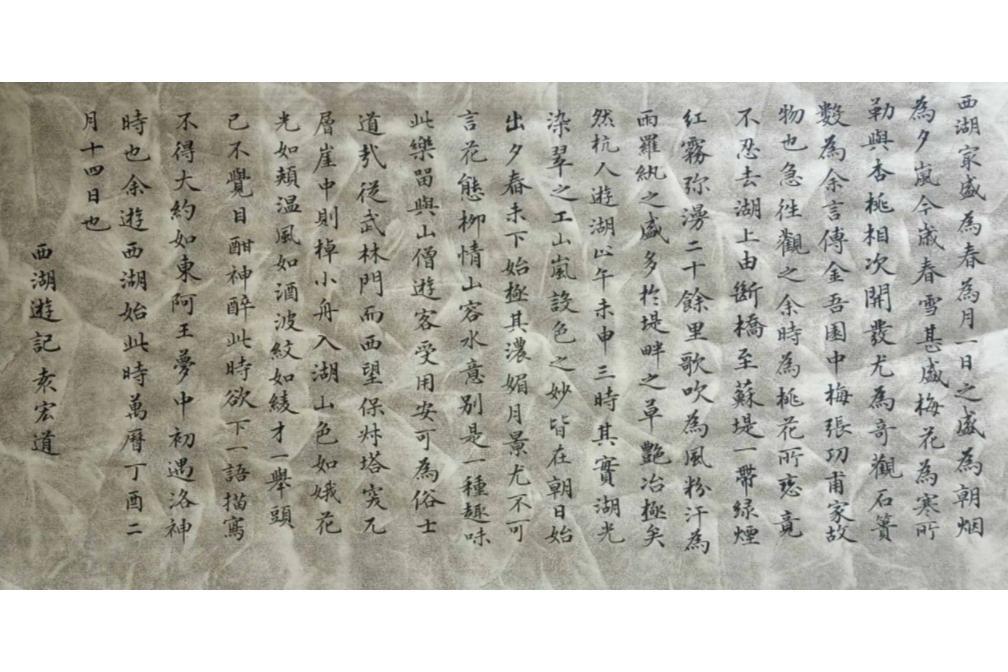 西湖家盛為春為月一日之盛為朝烟
為夕嵐今歲春雪甚盛梅花為寒所
勒與杏桃相次開發尤為奇觀石簣
數為余言傅金吾園中梅張功甫家故
物也急徃觀之余時為桃花所戀竟
不忍去湖上由斷橋至蘇堤一帶綠煙
紅霧弥漫二十餘里歌吹為風粉汗為
雨羅紈之盛多於堤畔之草艷冶極矣
然杭人遊湖止午未申三時其實湖光
染翠之工山嵐設色之妙皆在朝日始
出夕舂未下始極其濃媚月景尤不可
言花態柳情山容水意别是一種趣味
此樂留與山僧遊客受用安可為俗士
道㢤從武林門而西望保叔塔突兀
層崖中則棹小舟入湖山色如娥花
光如頰温風如酒波紋如綾才一舉頭
已不覺目酣神醉此時欲下一語描寫
不得大約如東阿王夢中初遇洛神
時也余遊西湖始此時萬曆丁酉二
月十四日也
西湖遊記袁宏道